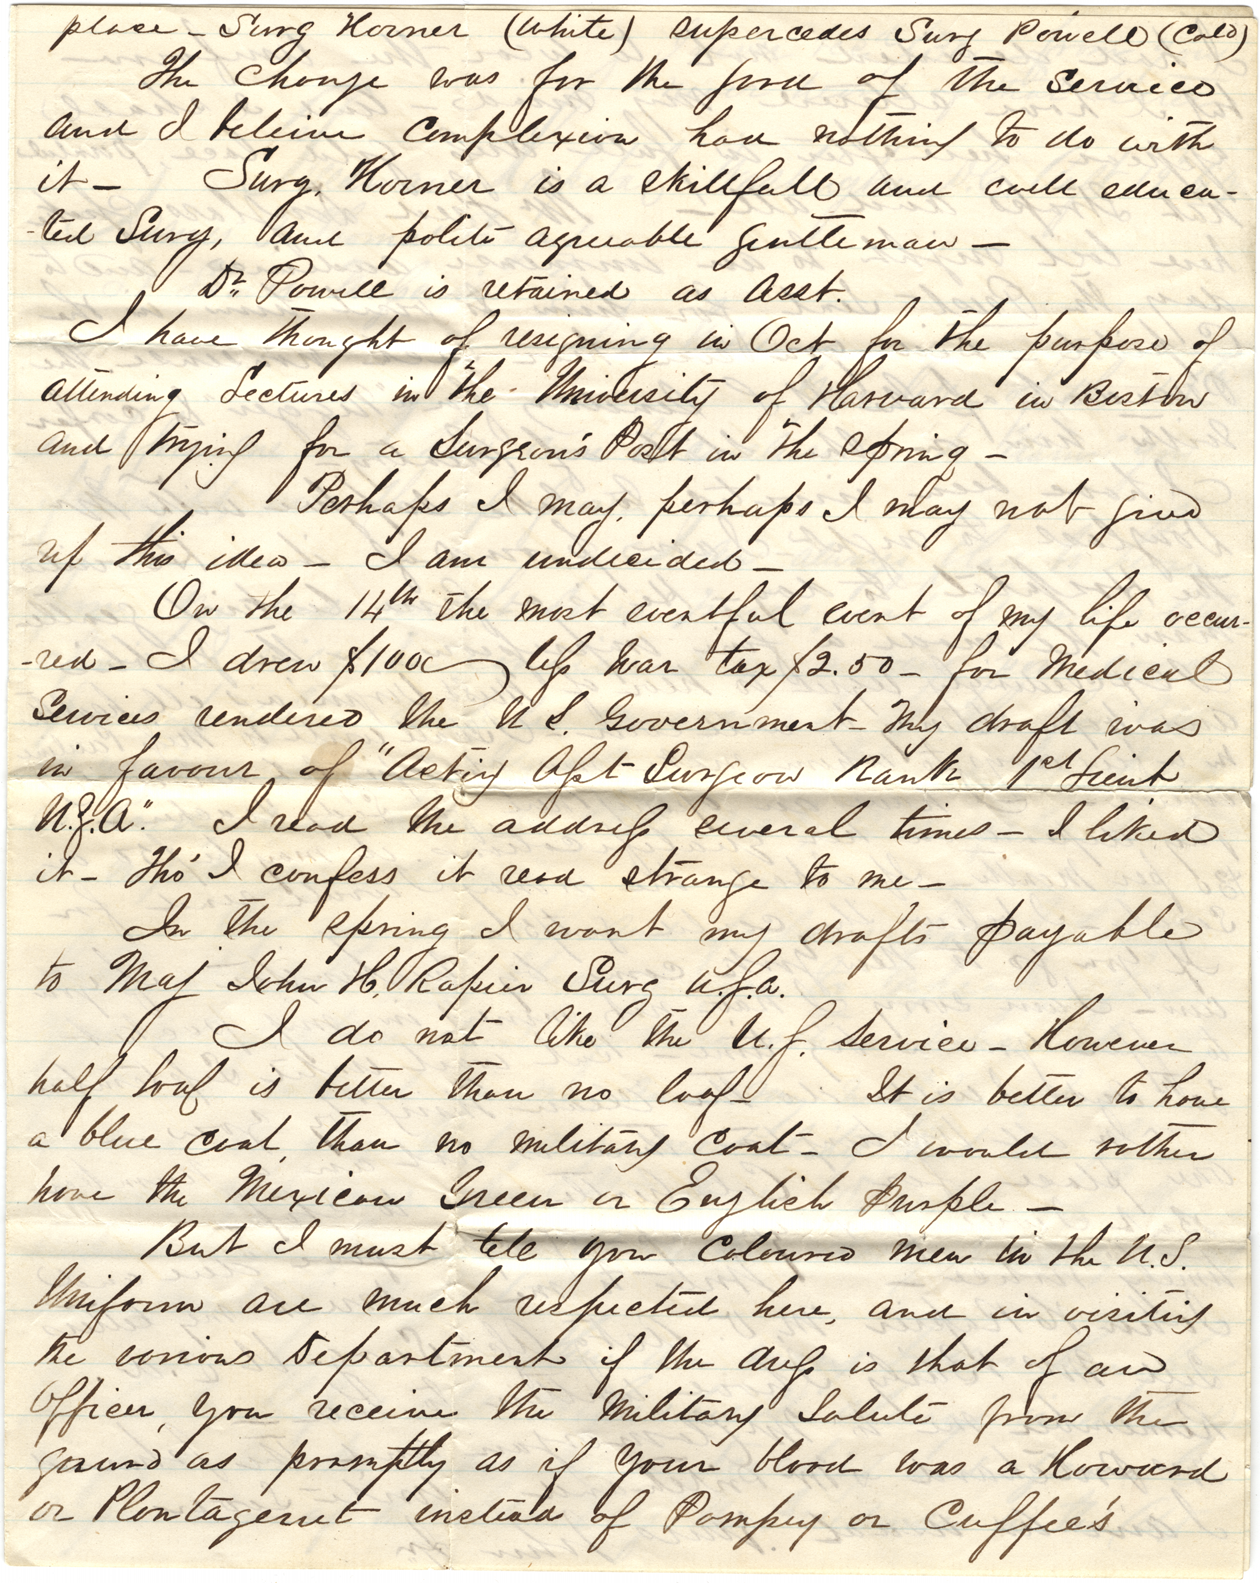 place - Surg Horner (white) supercedes Surg Powell (Cold)
The change was for the good of the service
and I beleive complexion had nothing to do with
it - Surg. Horner is a skillfull and well educa-
-ted Surg, and polite agreeable gentleman -
Dr. Powell is retained as Asst.
I have thought of resigning in Oct for the purpose of
attending Lectures in the University of Harvard in Boston
and trying for a Surgeon's Post in the Spring -
Perhaps I may, perhaps I may not give
up this idea - I am undecided -
On the 14th the most eventful event of my life occur-
-red - I drew $100 less War tax $2.50 - for Medical
Services rendered the U S. Government - My draft was
in favour of "Acting Asst Surgeon Rank 1st Lieut
U.S.A". I read the address several times - I liked
it - Tho' I confess it read strange to me -
In the spring I want my drafts payable
to Maj John H. Rapier Surg U.S.A.
I do not like the U.S. Service - However
half loaf is better than no loaf - It is better to have
a blue coat, than no military coat - I would rather
have the Mexican Green or English Purple -
But I must tell you coloured men in the U.S.
Uniform are much respected here, and in visiting
the various Department if the dress is that of an
Officer, you receive the Military Salute from the
guard as promptly as if your blood was a Howard
or Plantagenet instead of Pompey or Cuffee's